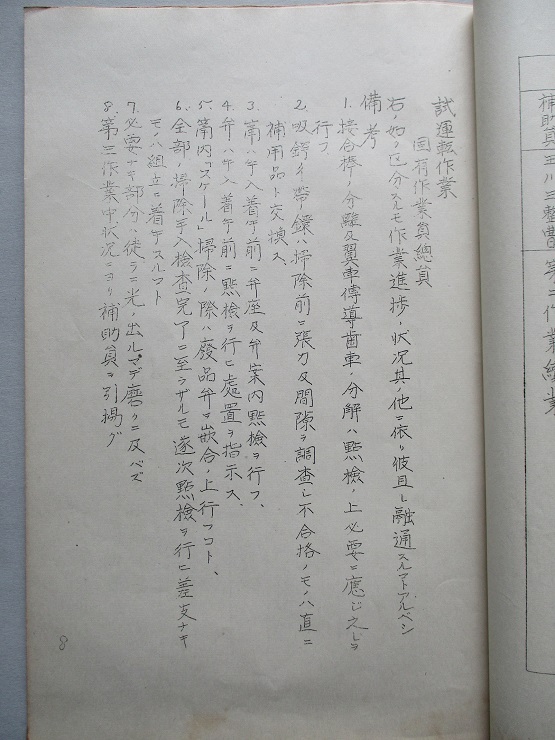 補助員 玉川三整曹 第二作業組業
試運転作業
固有作業員總員
右ノ如ク区分スルモ作業進捗ノ状况其ノ他ニ依リ彼且シ融通スルコトアルベシ
備考
1. 接合棒ノ分離及翼車傳導歯車ノ分解ハ點檢ノ上必要ニ應ジ之レヲ
行フ
2. 吸鍔弁帯ノ鐶ハ掃除前ニ張力及間隙ヲ調査シ不合格ノモノハ直ニ
補用品ト交換ス
3. 筩ハ手入着手前ニ弁座及弁案内點檢ヲ行フ、
4. 弁ハ手入着手前ニ點檢ヲ行ヒ處置ヲ指示ス.
5. 筩内「スケール」掃除ノ際ハ廢品弁ヲ嵌合ノ上行フコト、
6. 全部ノ掃除手入檢査完了ニ至ラザルモ遂次點檢ヲ行ヒ差支ナキ
モノハ組立ニ着手スルコト
7. 必要ナキ部分ハ徒ラニ光ノ出ルマデ磨クニ及バズ
8. 第三作業中状况ニヨリ補助員ヲ引揚グ
8